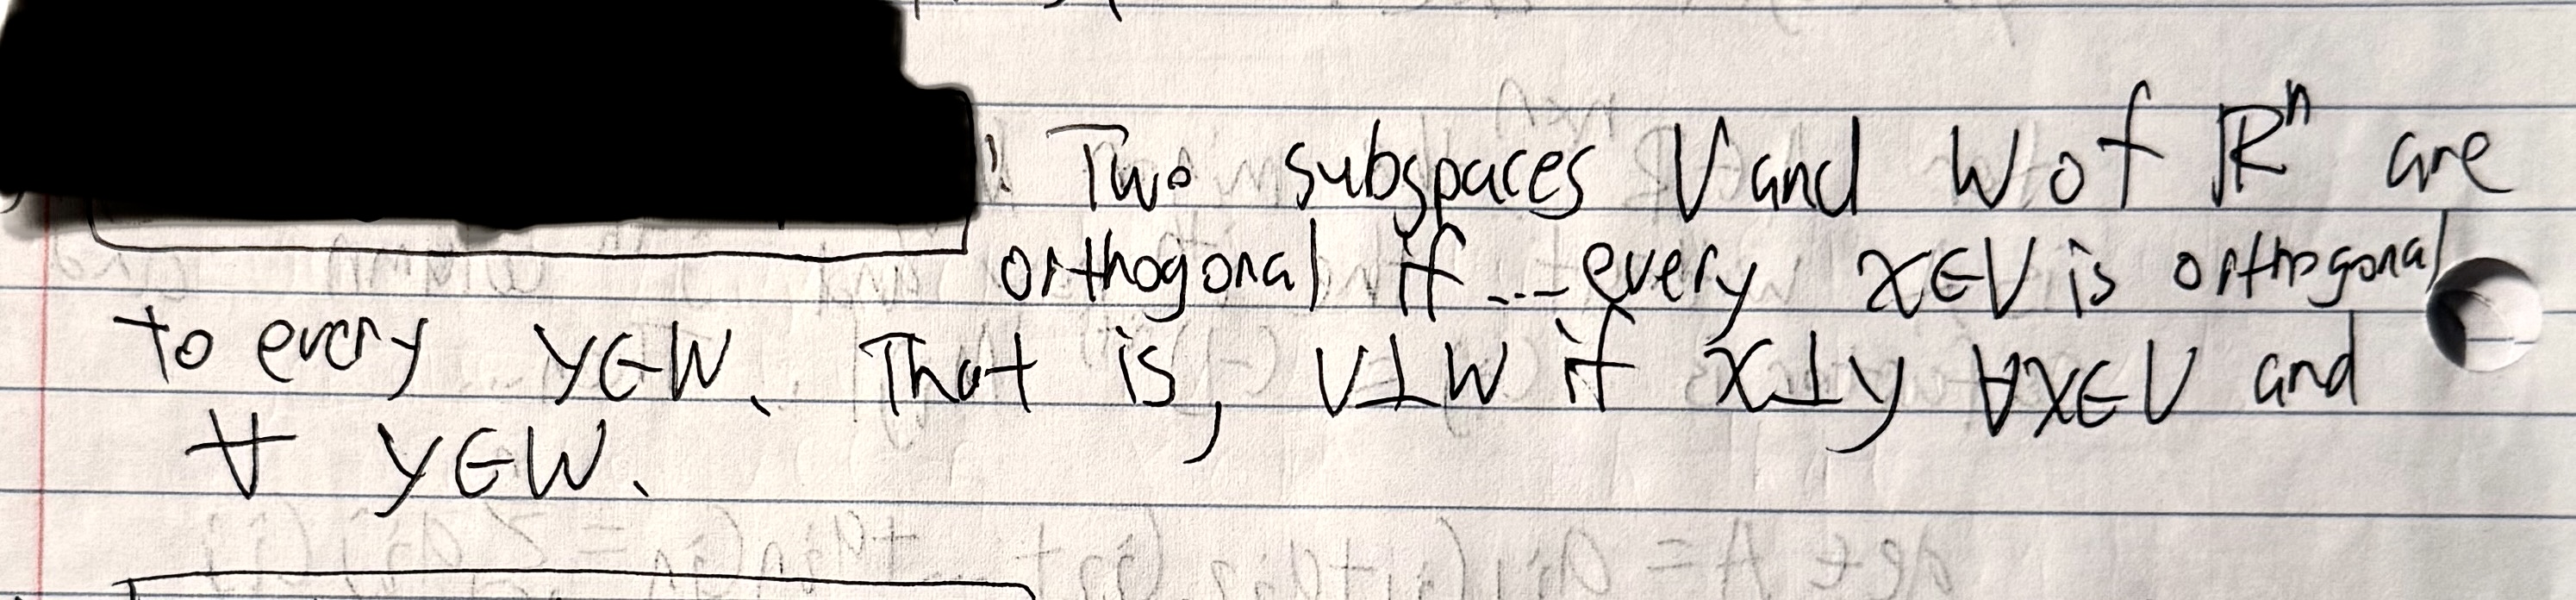 : Two subspaces V and W of ℝⁿ are
orthogonal if ... every x∈V is orthogonal
to every y∈W. That is, V⊥W if x⊥y ∀x∈V and
∀ y∈W.